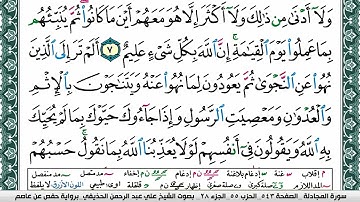 وَلَآ أَدْنَىٰ مِن ذَٰلِكَ وَلَآ أَكْثَرَ إِلَّا هُوَ مَعَهُمْ أَيْنَ مَا كَانُوا۟ ۖ ثُمَّ يُنَبِّئُهُم
بِمَا عَمِلُوا۟ يَوْمَ ٱلْقِيَـٰمَةِ ۚ إِنَّ ٱللَّهَ بِكُلِّ شَىْءٍ عَلِيمٌ ٧ أَلَمْ تَرَ إِلَى ٱلَّذِينَ
نُهُوا۟ عَنِ ٱلنَّجْوَىٰ ثُمَّ يَعُودُونَ لِمَا نُهُوا۟ عَنْهُ وَيَتَنَـٰجَوْنَ بِٱلْإِثْمِ
وَٱلْعُدْوَٰنِ وَمَعْصِيَتِ ٱلرَّسُولِ وَإِذَا جَآءُوكَ حَيَّوْكَ بِمَا لَمْ يُحَيِّكَ
بِهِ ٱللَّهُ وَيَقُولُونَ فِىٓ أَنفُسِهِمْ لَوْلَا يُعَذِّبُنَا ٱللَّهُ بِمَا نَقُولُ ۚ حَسْبُهُمْ
سورة المجادلة الصفحة ٥٤٣ الحزب ٥٥ الجزء ٢٨ بصوت الشيخ علي عبد الرحمن الحذيفي برواية حفص عن عاصم